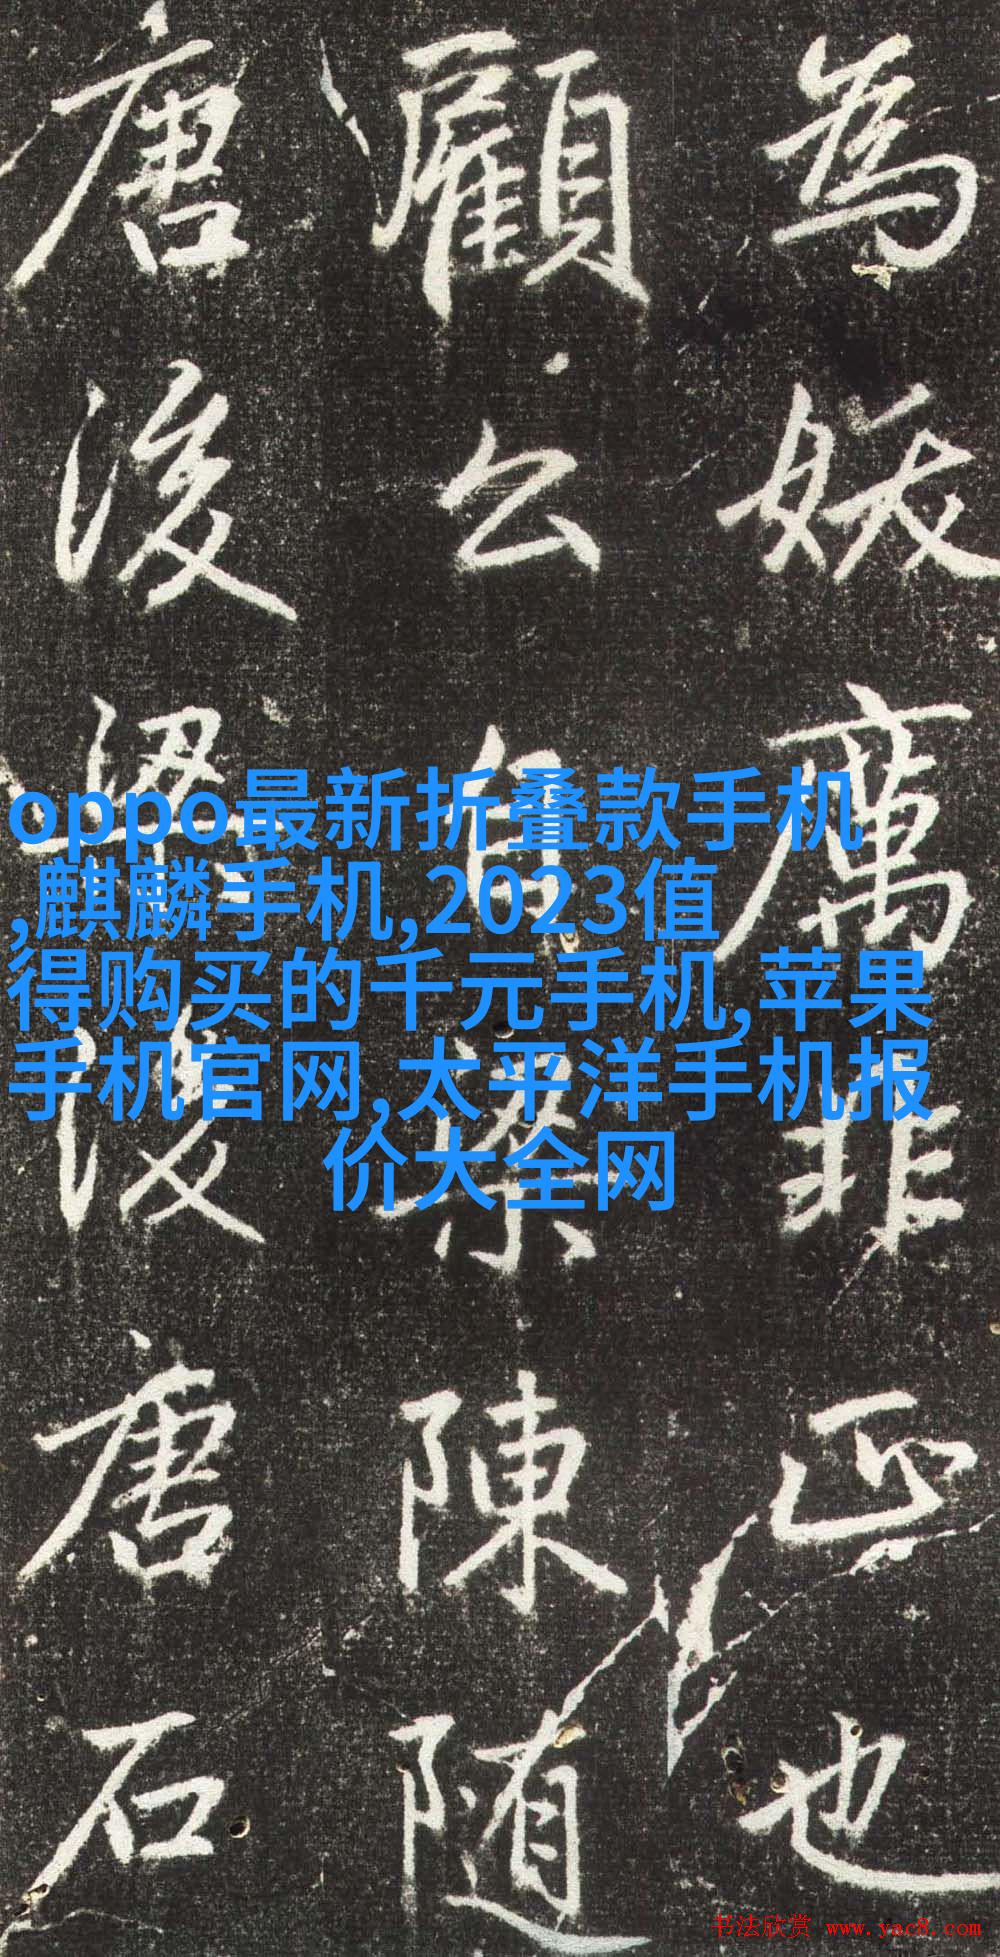 為妖厲非正也
顧公自梁陳随
唐後梁後唐石
oppo最新折叠款手机
,麒麟手机,2023值
得购买的千元手机,苹果
手机官网,太平洋手机报
价大全网
书法欣赏 www.yac8.com